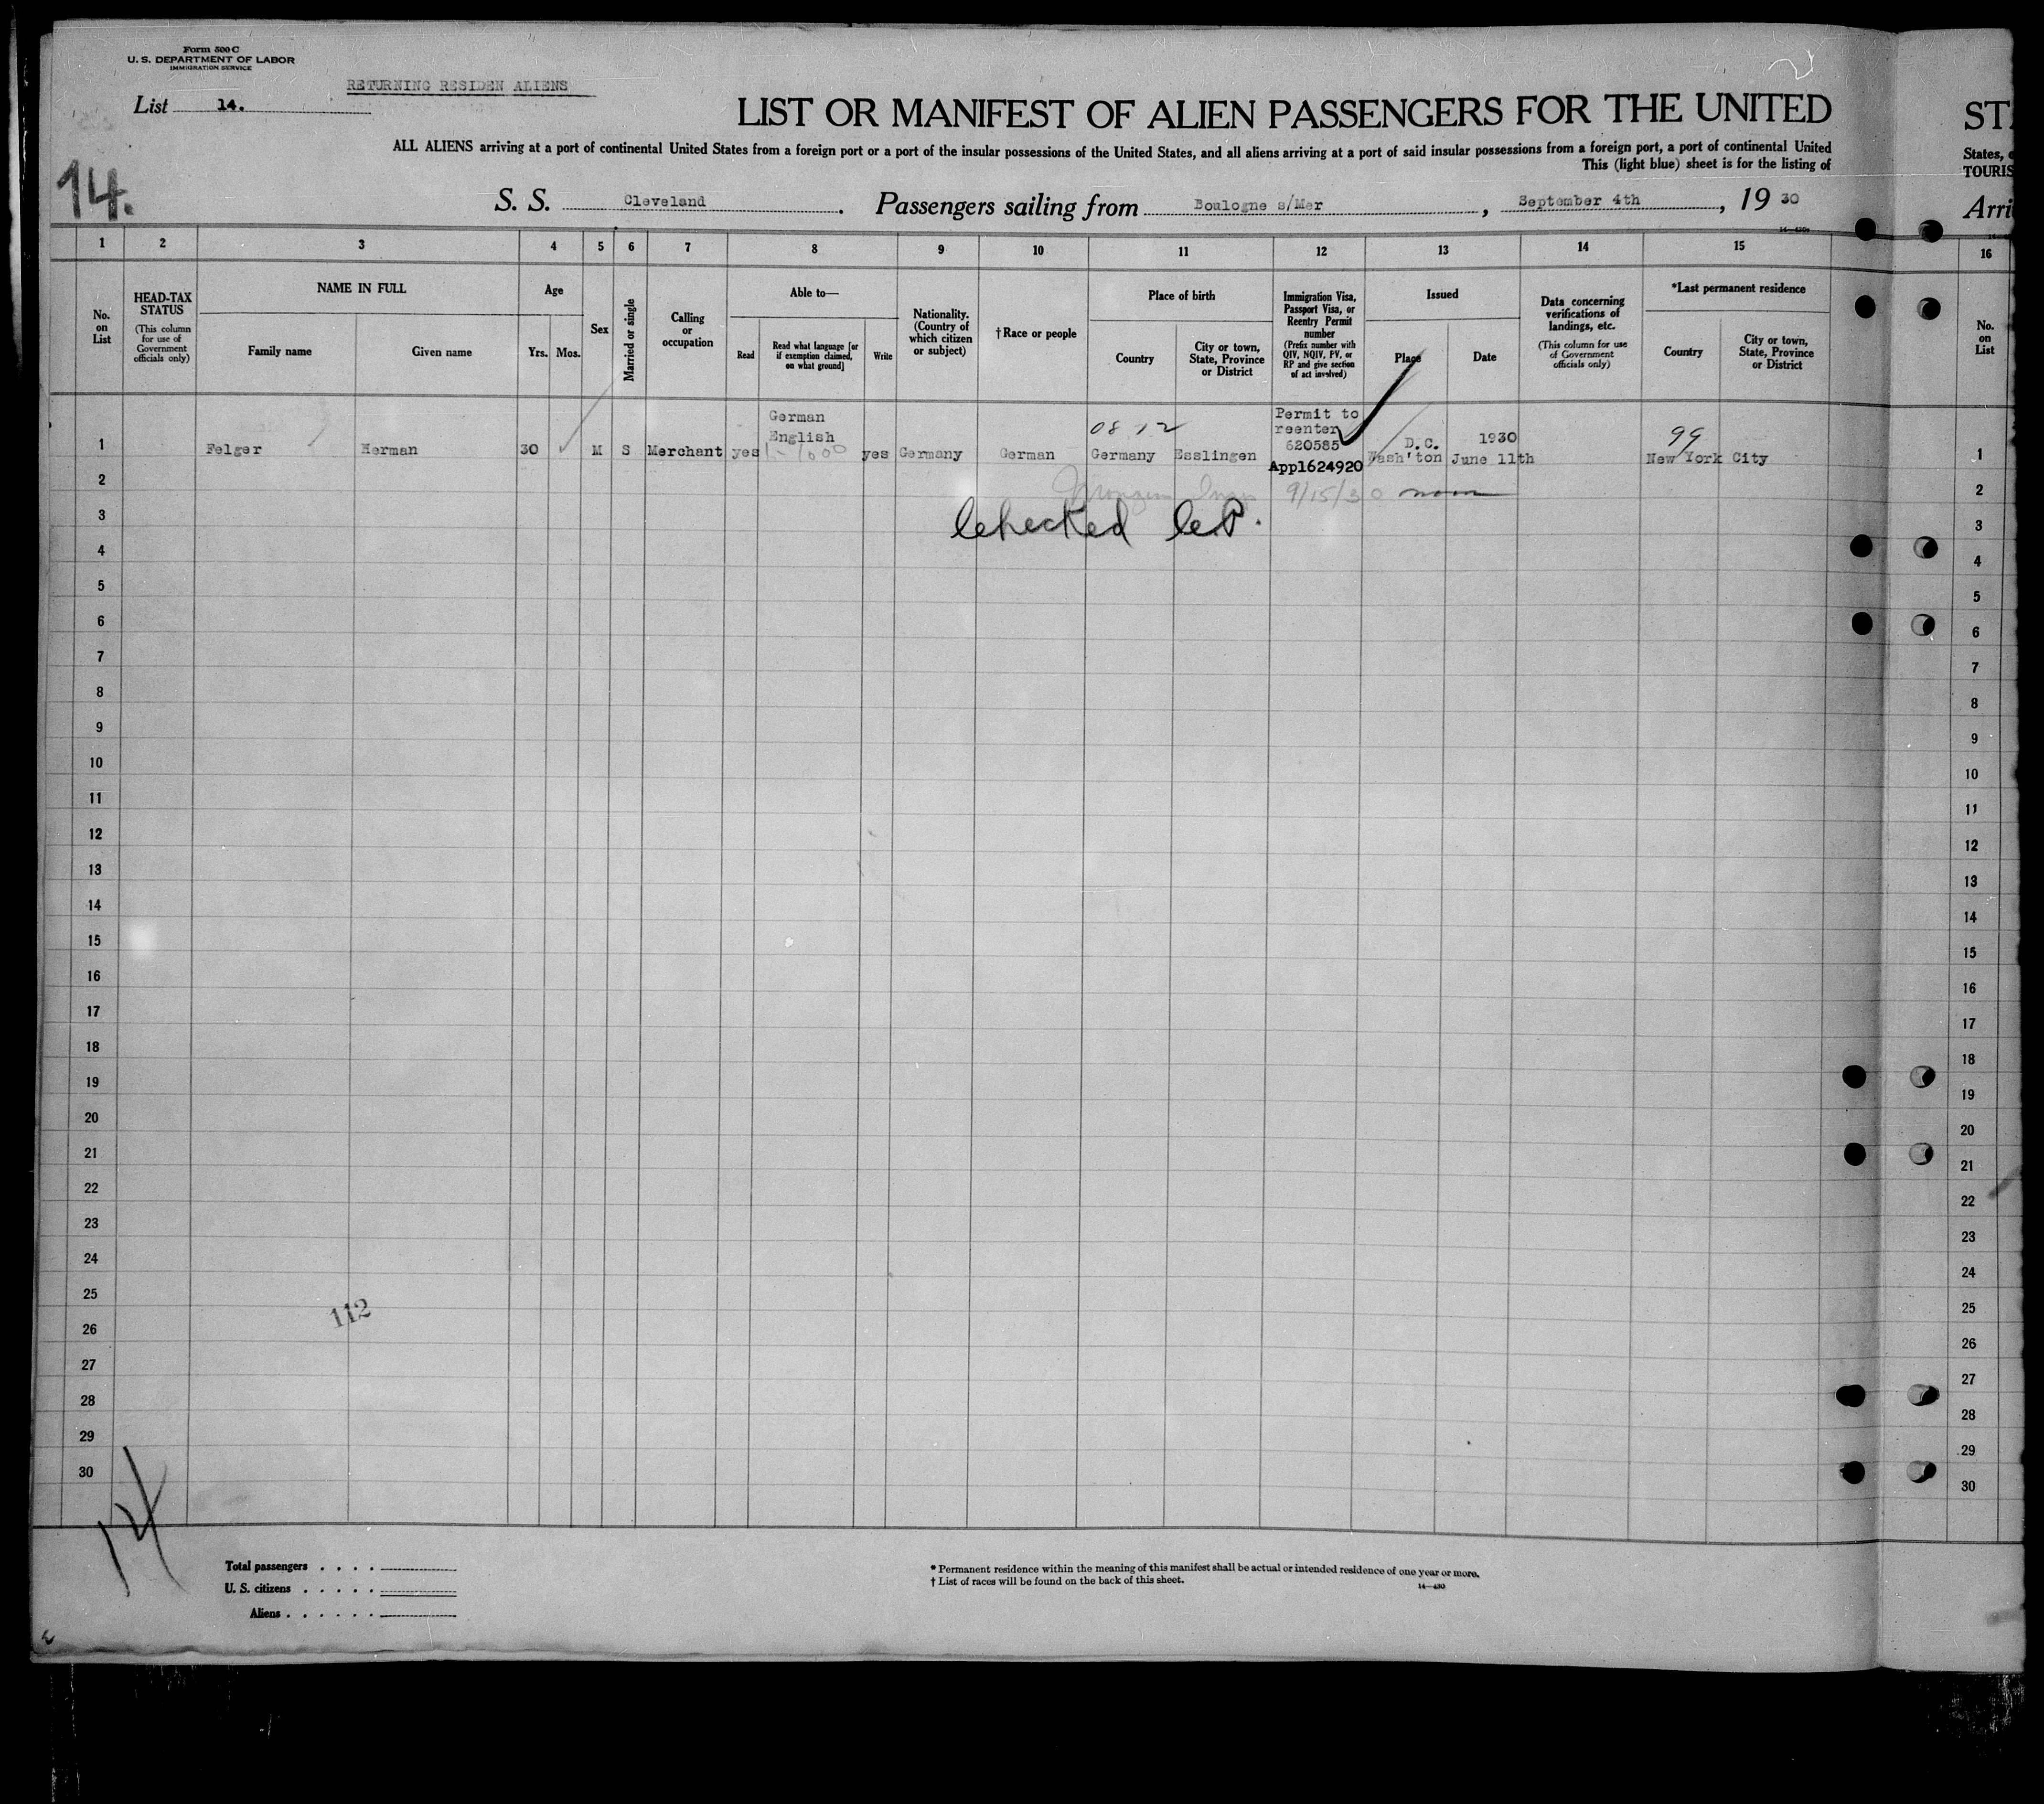 Form 500 C
U. S. DEPARTMENT OF LABOR
IMMIGRATION SERVICE
RETURNING RESIDEN ALIENS
List 14.
14.
LIST OR MANIFEST OF ALIEN PASSENGERS FOR THE UNITED
ALL ALIENS arriving at a port of continental United States from a foreign port or a port of the insular possessions of the United States, and all aliens arriving at a port of said insular possessions from a foreign port, a port of continental United
This (light blue) sheet is for the listing of
S. S. Cleveland. Passengers sailing from Boulogne s/Mer, September 4th, 19 30
14—430a
ST
States,
TOURIS
Arri
1 2 3 4 5 6 7 8 9 10 11 12 13 14 15 16
No. on List
HEAD-TAX STATUS
(This column for use of Government officials only)
NAME IN FULL
Family name
Given name
Age
Yrs. Mos.
Sex
Married or single
Calling or occupation
Able to—
Read
Read what language [or if exemption claimed, on what ground]
Write
Nationality. (Country of which citizen or subject)
†Race or people
Place of birth
Country
City or town, State, Province or District
Immigration Visa, Passport Visa, or Reentry Permit number
(Prefix number with QIV, NQIV, PV, or RP and give section of act involved)
Issued
Place
Date
Data concerning verifications of landings, etc.
(This column for use of Government officials only)
*Last permanent residence
Country
City or town, State, Province or District
No. on List
German
English
Permit to
reenter
620585
App1624920
08 12
D.C.
1930
99
1 Felger Herman 30 M S Merchant yes yes Germany German Germany Esslingen Wash'ton June 11th New York City 1
2 9/15/30 2
3 Checked 3
4 4
5 5
6 6
7 7
8 8
9 9
10 10
11 11
12 12
13 13
14 14
15 15
16 16
17 17
18 18
19 19
20 20
21 21
22 22
23 23
24 24
25 25
112
26 26
27 27
28 28
29 29
30 30
14
Total passengers . . . .
U. S. citizens . . . . .
Aliens . . . . . .
* Permanent residence within the meaning of this manifest shall be actual or intended residence of one year or more.
† List of races will be found on the back of this sheet.
14—430